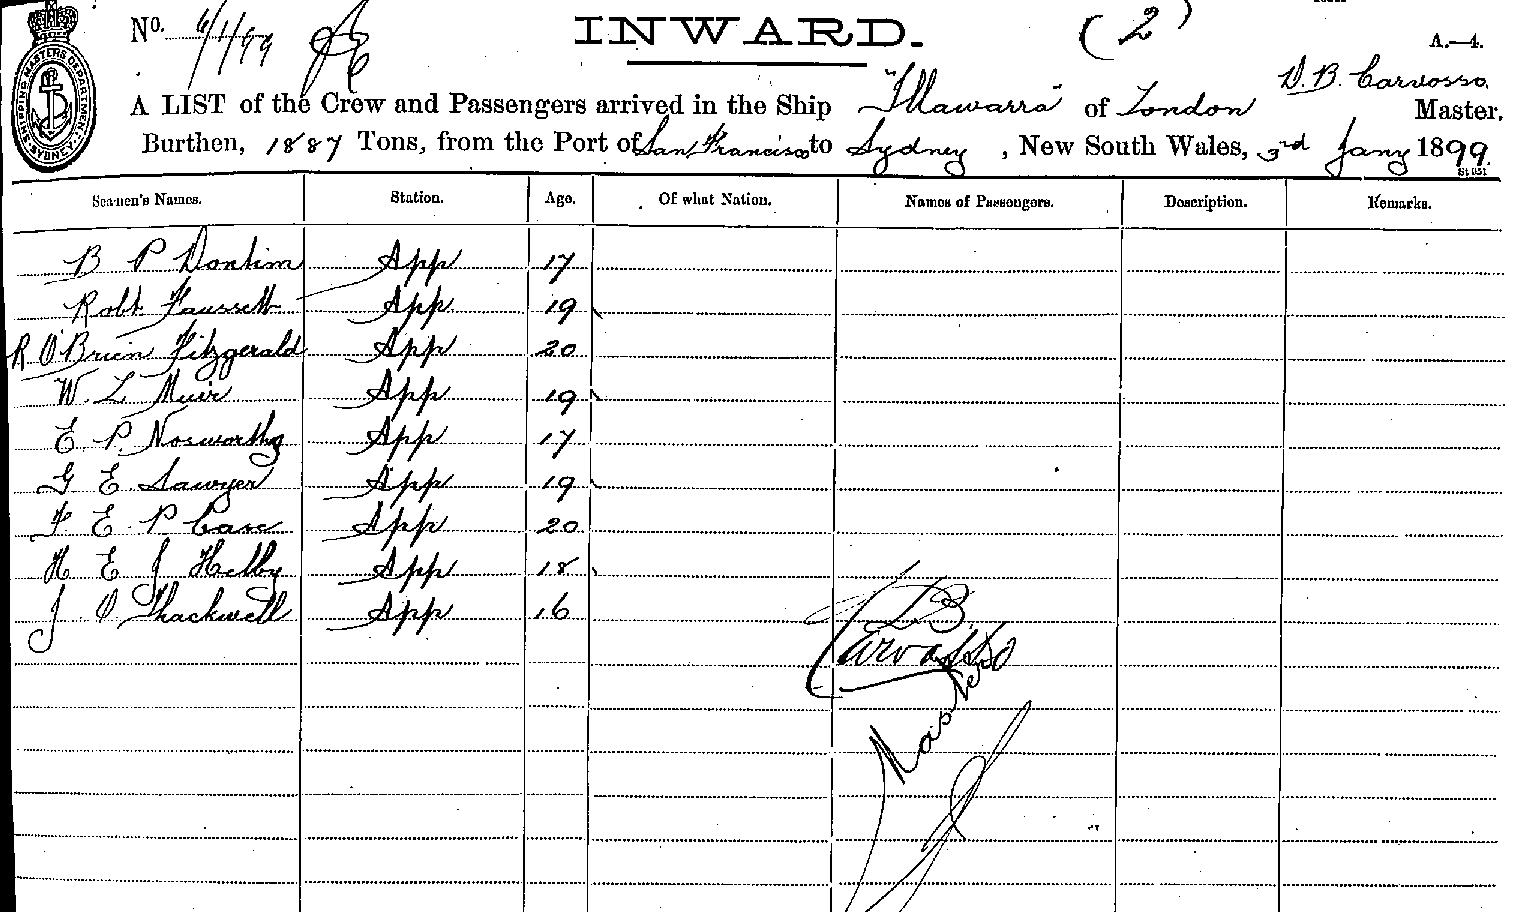 No. 6/1/99
INWARD.
(2)
A.—4.
D. B. Carvosso
A LIST of the Crew and Passengers arrived in the Ship "Illawarra" of London Master,
Burthen, 1887 Tons, from the Port of San Francisco to Sydney, New South Wales, 3rd Jany 1899.
SHIPPING MASTERS DEPARTMENT SYDNEY
Seamen's Names. Station. Age. Of what Nation. Names of Passengers. Description. Remarks.
B P App 17
Robt Faussett App 19
R O'Brien Fitzgerald App 20
W. L Muir App 19
E P. Nosworthy App 17
G E Sawyer App 19
F E P Case App 20
H E J Helby App 18
J O Thackwell App 16
D B.
Carvosso
Master